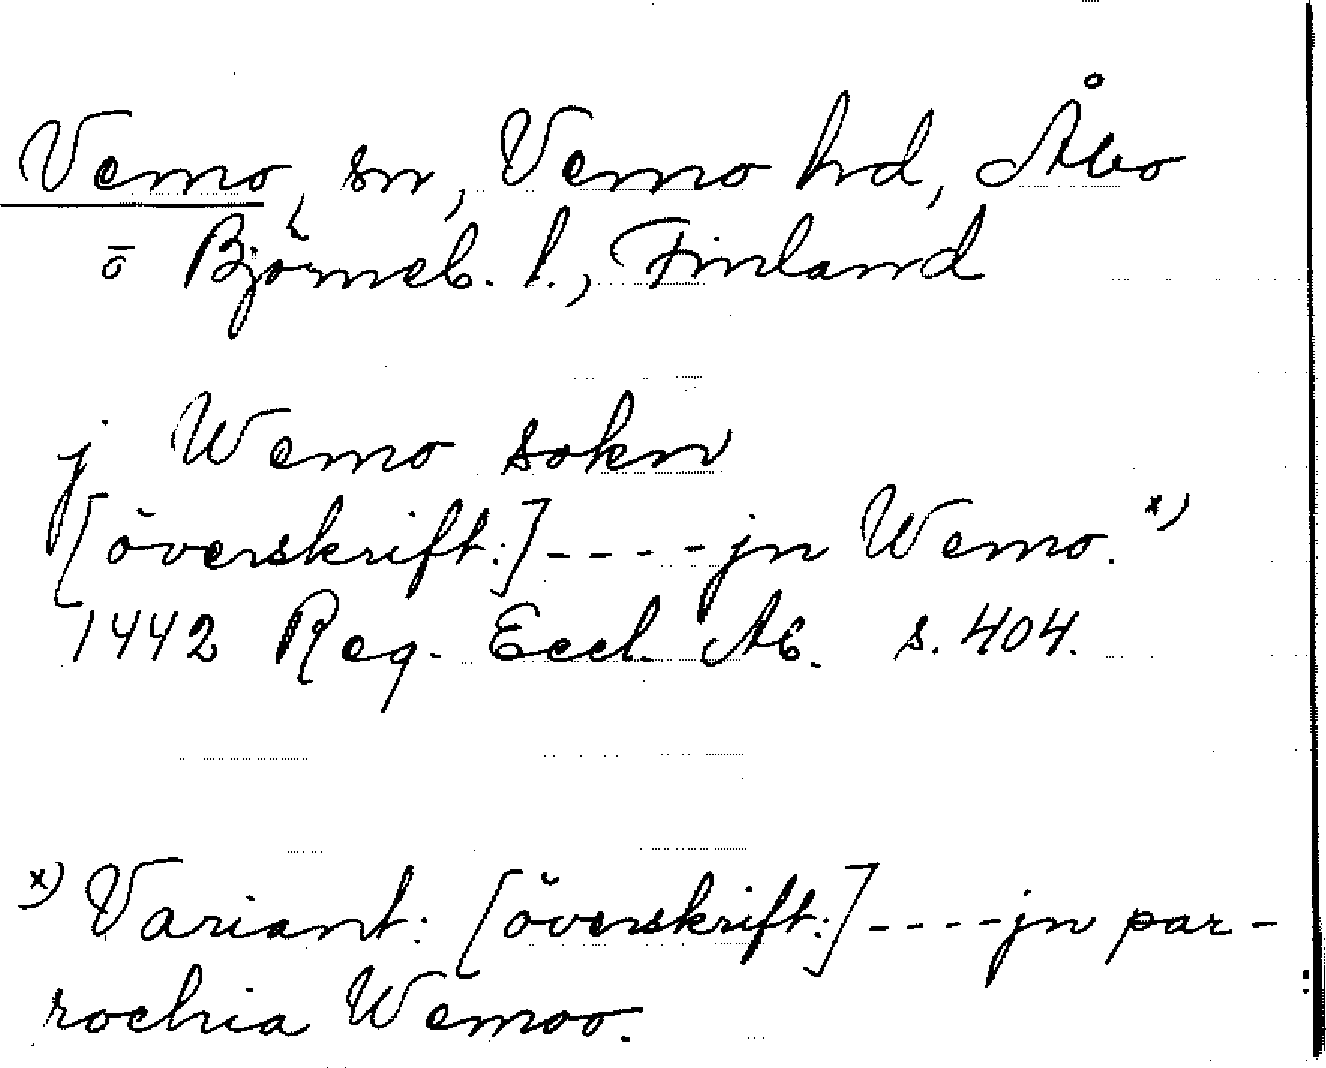 Vemo, sn, Vemo hd, Åbo
o Björneb. l., Finland
j Wemo sokn
[överskrift:] - - - - jn Wemo. x)
1442 Reg. Eccl. Ab. s. 404.
x) Variant: [överskrift:] - - - - jn par-
rochia Wemoo.